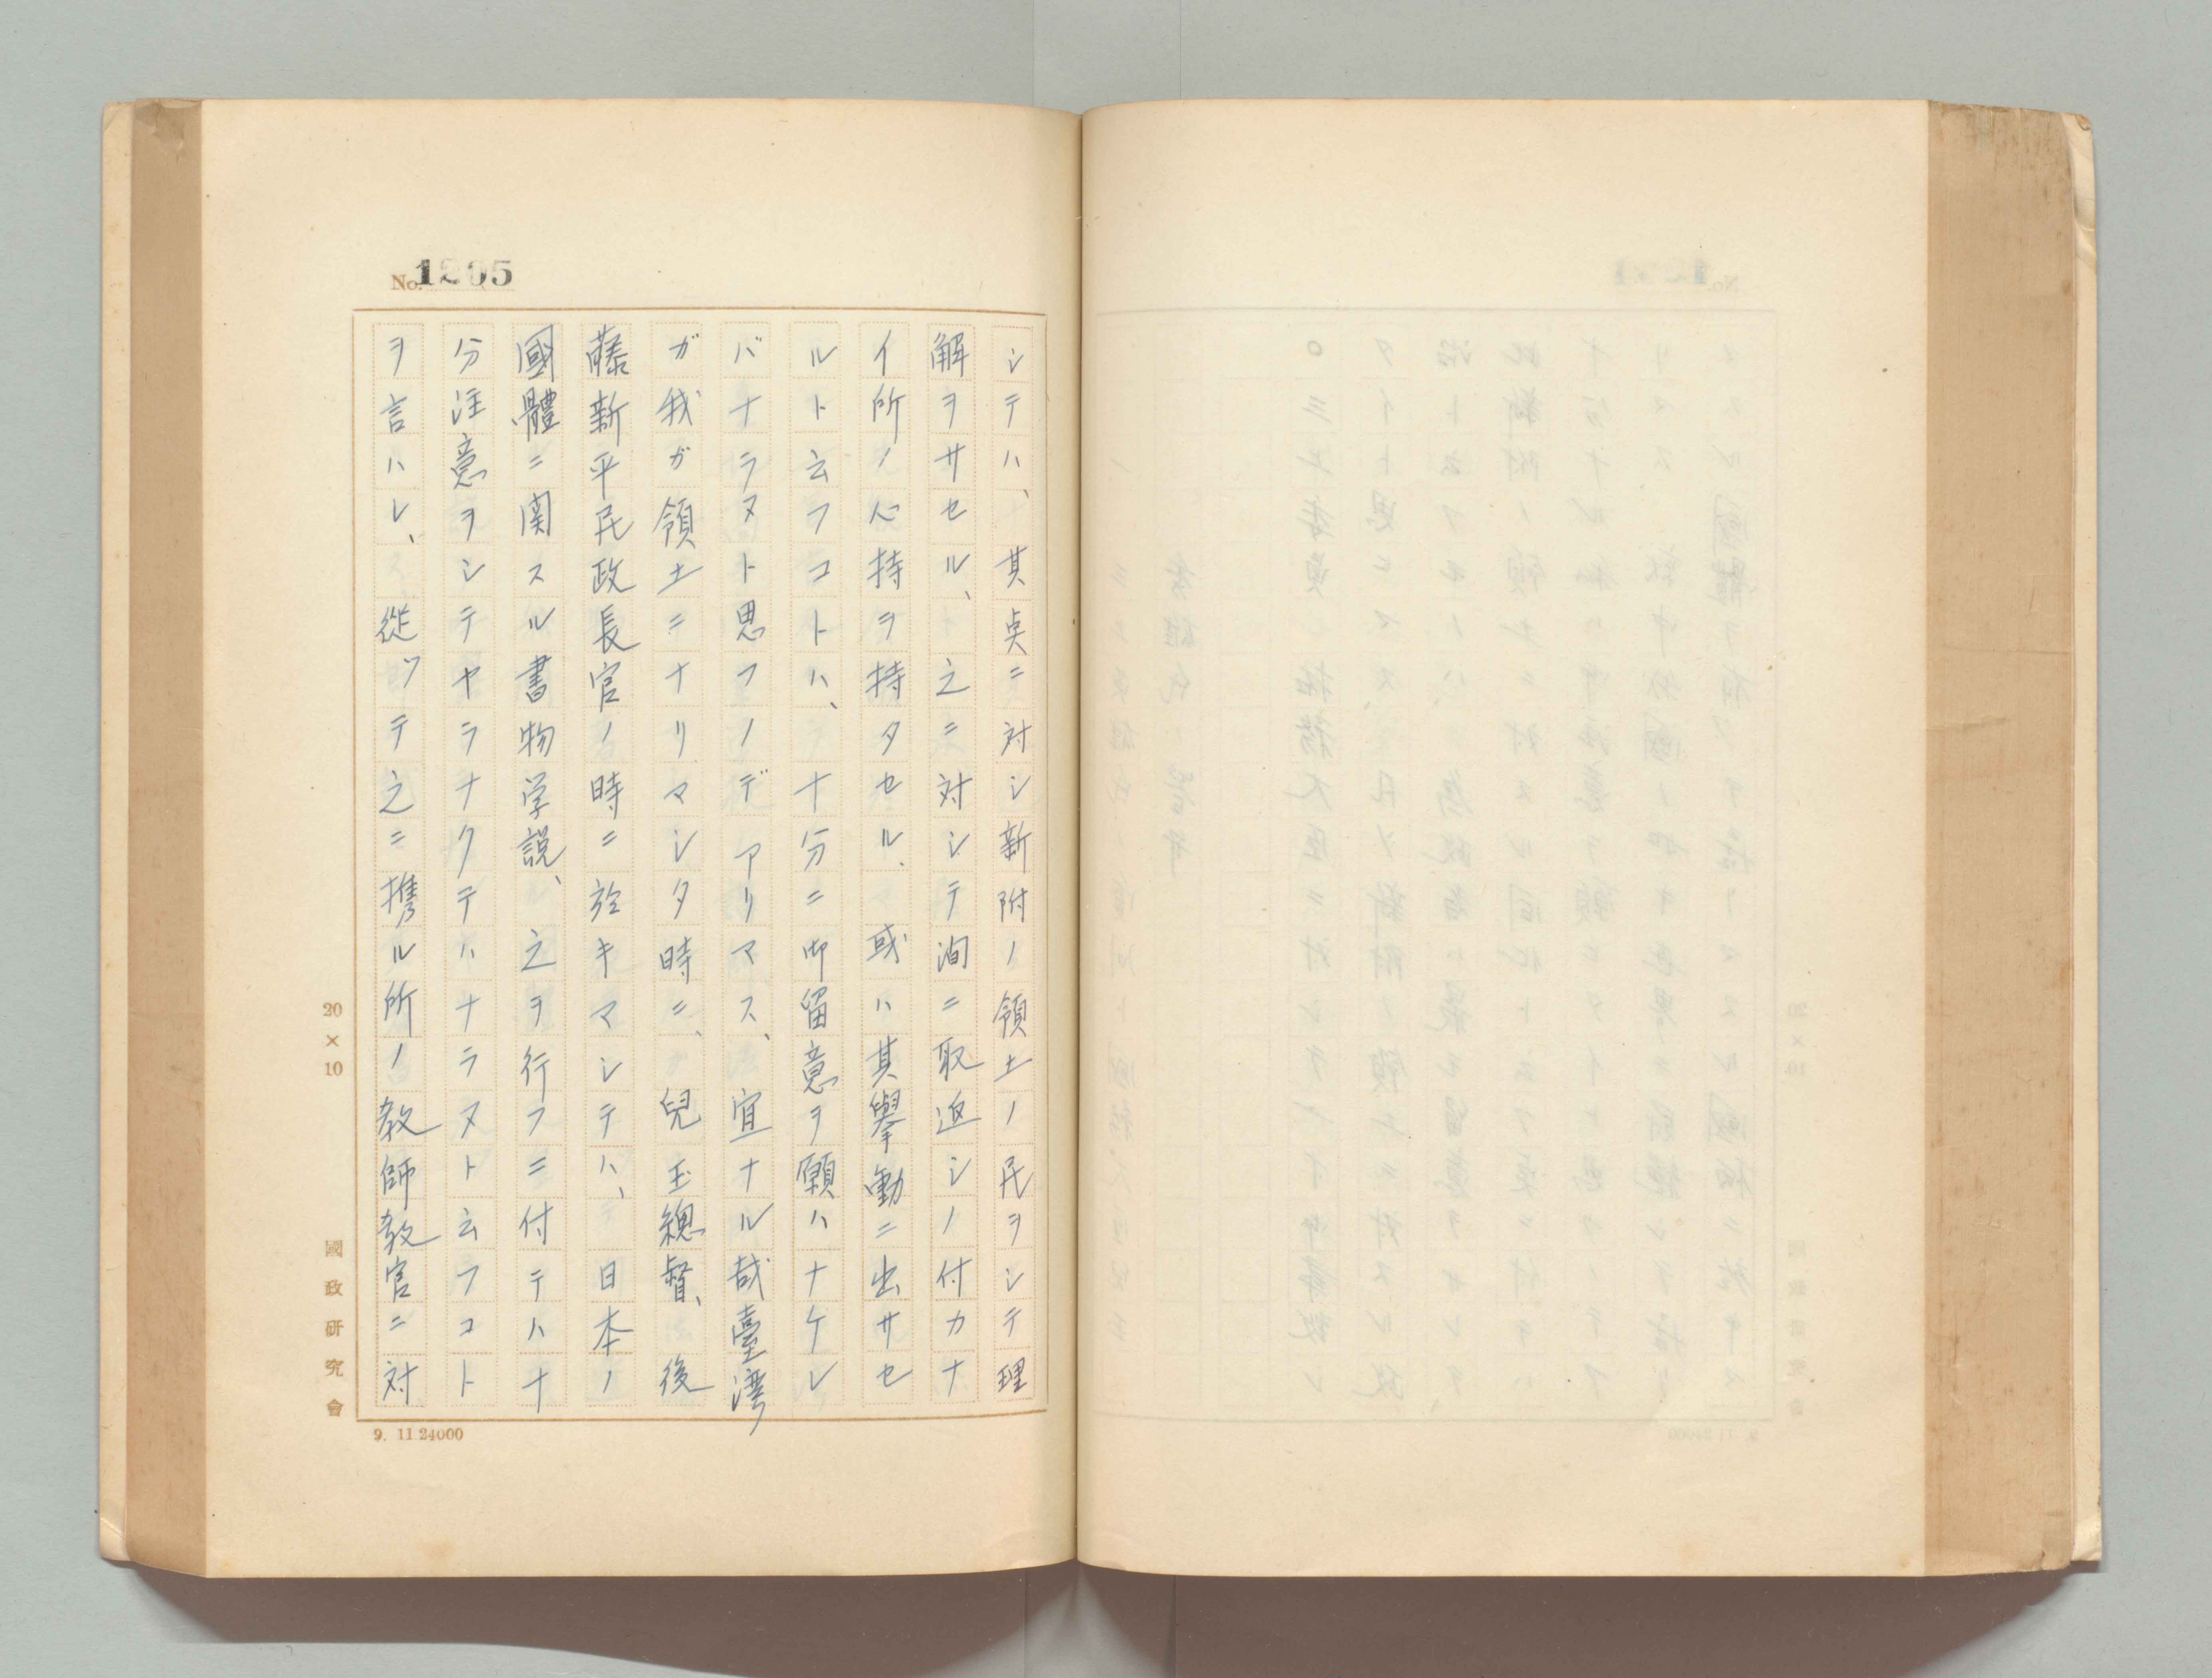 No. 1205
シテハ、其奌ニ対シ新附ノ領土ノ民ヲシテ理
解ヲサセル、之ニ対シテ洵ニ取返シノ付カナ
イ所ノ心持ヲ持タセル、或ハ其擧動ニ出サセ
ルト云フコトハ、十分ニ御留意ヲ願ハナケレ
バナラヌト思フノデアリマス、宜ナル哉臺湾
ガ我ガ領土ニナリマシタ時ニ、兒玉總督、後
藤新平民政長官ノ時ニ於キマシテハ、日本ノ
國體ニ関スル書物学説、之ヲ行フニ付テハ十
分注意ヲシテヤラナクテハナラヌト云フコト
ヲ言ハレ、従ツテ之ニ携ル所ノ教師教官ニ対
20×10
國政研究會
9. 11 24000